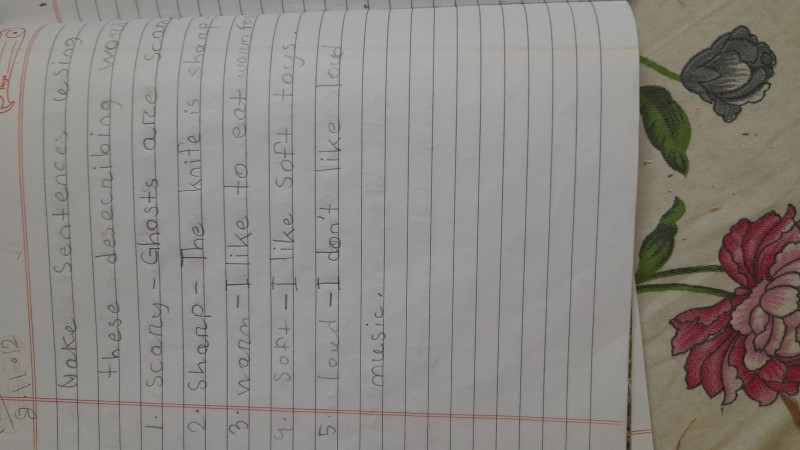 Make sentences using
these desecribing
1. Scary - Ghosts are
2. Sharp - The knife is sharp
3. warm - I like to eat warm
4. Soft - I like soft toys.
5. loud - I don't like loud
music.